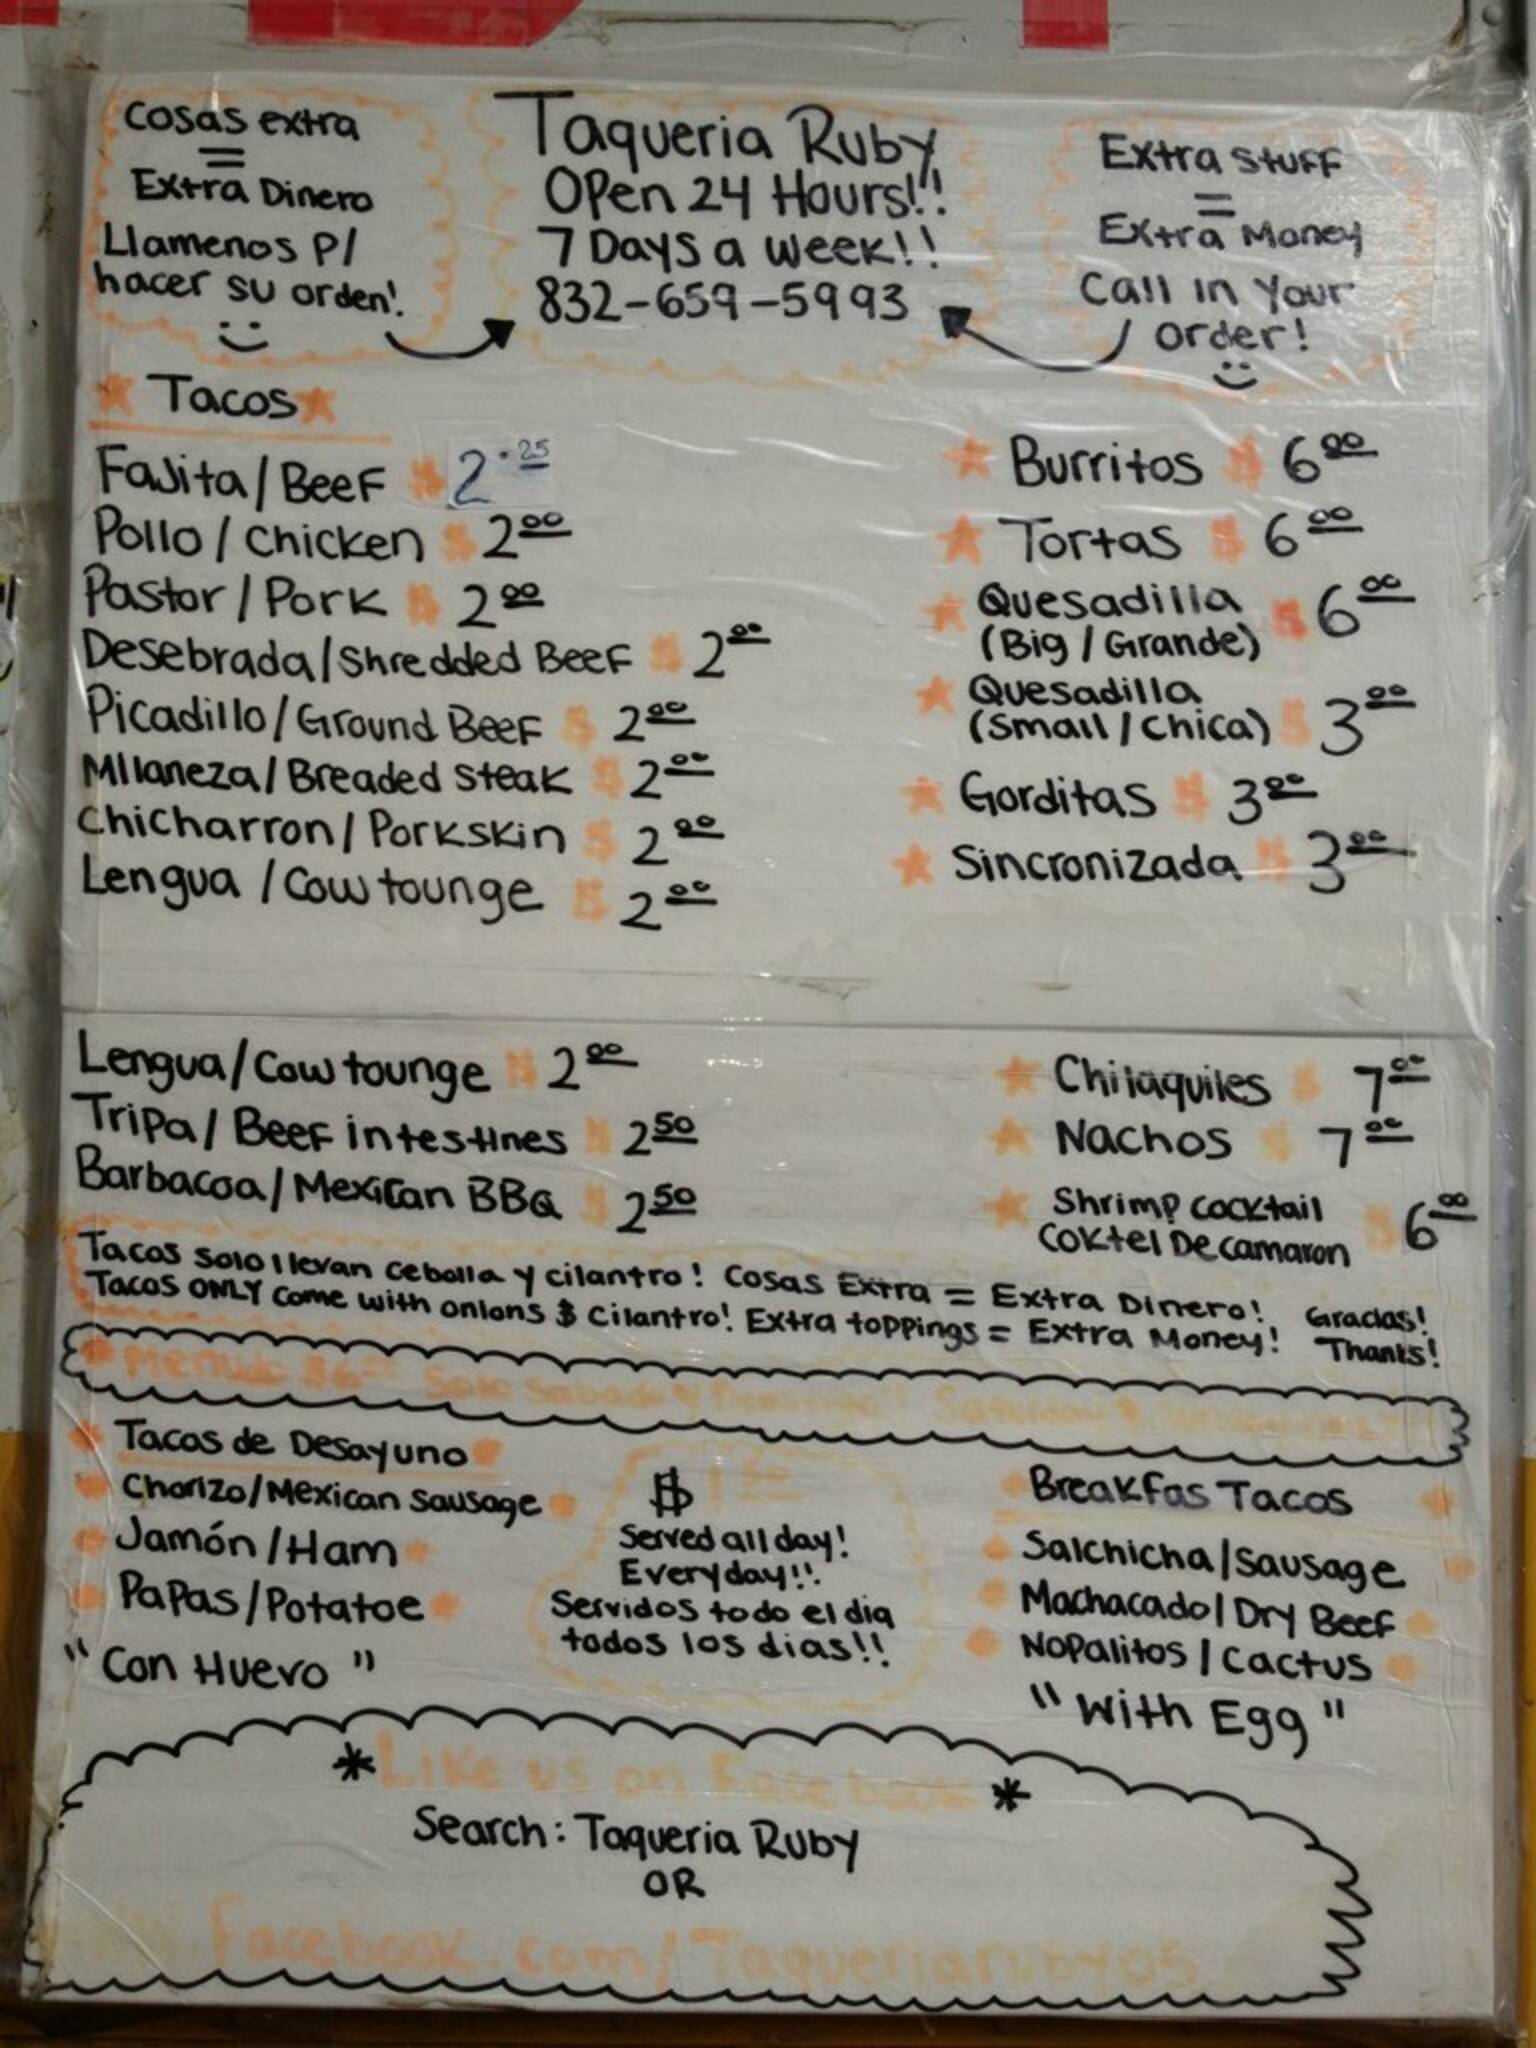 Cosas extra
=
Extra Dinero
Llamenos p/
hacer su orden!
Taqueria Ruby
Open 24 Hours!!
7 Days a week!!
832-659-5993
Extra stuff
=
Extra Money
Call in your
order!
Tacos
Fajita/Beef $ 2.25
Pollo/Chicken $ 2.00
Pastor/Pork $ 2.00
Desebrada/Shredded Beef $ 2.00
Picadillo/Ground Beef $ 2.00
Milaneza/Breaded steak $ 2.00
Chicharron/Porkskin $ 2.00
Lengua/Cow tounge $ 2.00
Burritos $ 6.00
Tortas $ 6.00
Quesadilla
(Big/Grande) $ 6.00
Quesadilla
(Small/Chica) $ 3.00
Gorditas $ 3.00
Sincronizada $ 3.00
Lengua/Cow tounge $ 2.00
Tripa/Beef intestines $ 2.50
Barbacoa/Mexican BBQ $ 2.50
Chilaquiles $ 7.00
Nachos $ 7.00
Shrimp cocktail
Coktel De camaron $ 6.00
Tacos solo llevan cebolla y cilantro! Cosas Extra = Extra Dinero! Gracias!
Tacos ONLY come with onions $ cilantro! Extra toppings = Extra Money! Thanks!
Menudo $6.00 Solo Sabado y Domingo! Saturday &
Tacos de Desayuno
Chorizo/Mexican Sausage
Jamón/Ham
Papas/Potatoe
"Con Huevo"
$ 1.50
Served all day!
Everyday!!
Servidos todo el dia
todos los dias!!
Breakfas Tacos
Salchicha/Sausage
Machacado/Dry Beef
Nopalitos/Cactus
"With Egg"
*Like us on Facebook*
Search: Taqueria Ruby
OR
Facebook.com/Taqueriaruby05